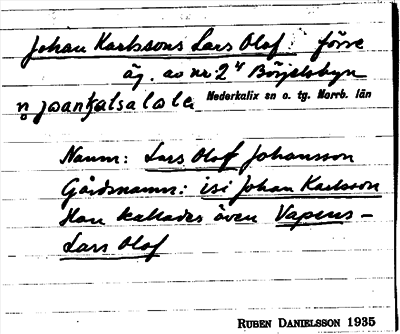 Johan Karlssons Lars Olof: förre
äg. av nr 2⁴ Börjelsbyn
Nederkalix sn o. tg. Norrb. län
Namn: Lars Olof Johansson
Gårdsnamn: isi Johan Karlsson
Han kallades även Vapens-
Lars Olof
RUBEN DANIELSSON 1935